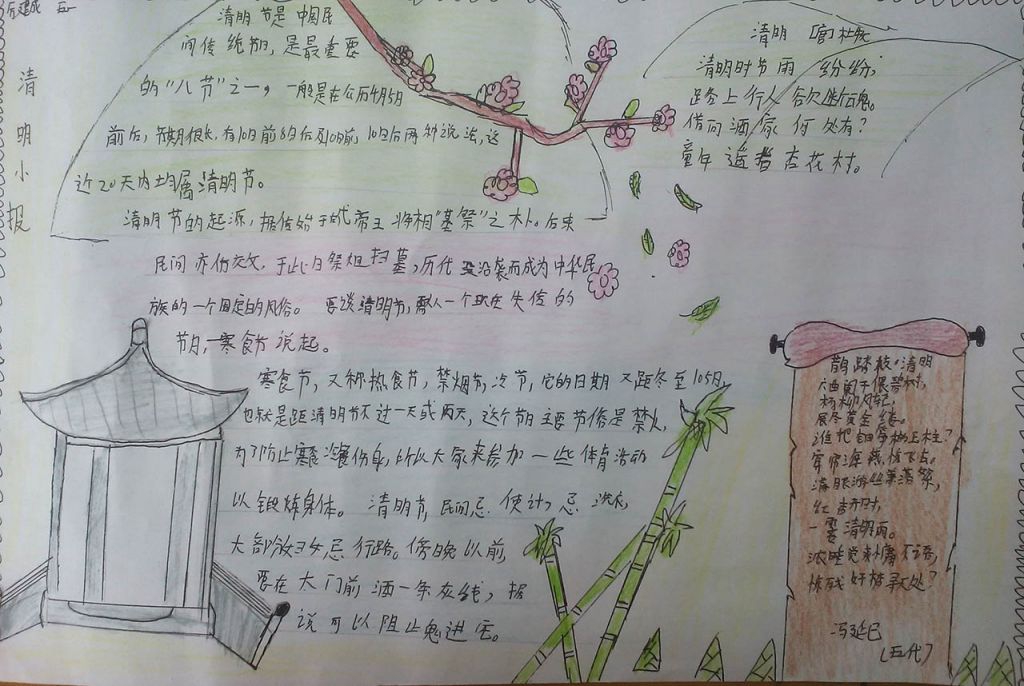 清明小报
清明节是中国民
间传统节日，是最重要
的“八节”之一，一般是在公历4月5日
前后，节期很长，有10日前8日后及10日前，10日后两种说法，这
近20天内均属清明节。
清明节的起源，据传始于古代帝王将相“墓祭”之礼。后来
民间亦仿效，于此日祭祖扫墓，历代沿袭而成为中华民
族的一个固定的风俗。 要谈清明节，需从一个现在失传的
节日，寒食节说起。
寒食节，又称热食节，禁烟节，冷节，它的日期又距冬至105日，
也就是距清明节不过一天或两天，这个节日主要节俗是禁火，
为了防止寒食冷餐伤身，所以大家来参加一些体育活动
以锻炼身体。 清明节，民间忌使针，忌洗衣，
大部分妇女忌行路。傍晚以前，
要在大门前洒一条灰线，据
说可以阻止鬼进宅。
清明 [唐]杜牧
清明时节雨纷纷，
路上行人欲断魂。
借问酒家何处有？
童年遥指杏花村。
鹊踏枝·清明
六曲阑干偎碧树，
杨柳风轻，
展尽黄金缕。
谁把钿筝移玉柱？
穿帘海燕惊飞去。
满眼游丝兼落絮，
红杏开时，
一霎清明雨。
浓睡觉来慵不语，
惊残好梦寻处？
冯延巳
（五代）